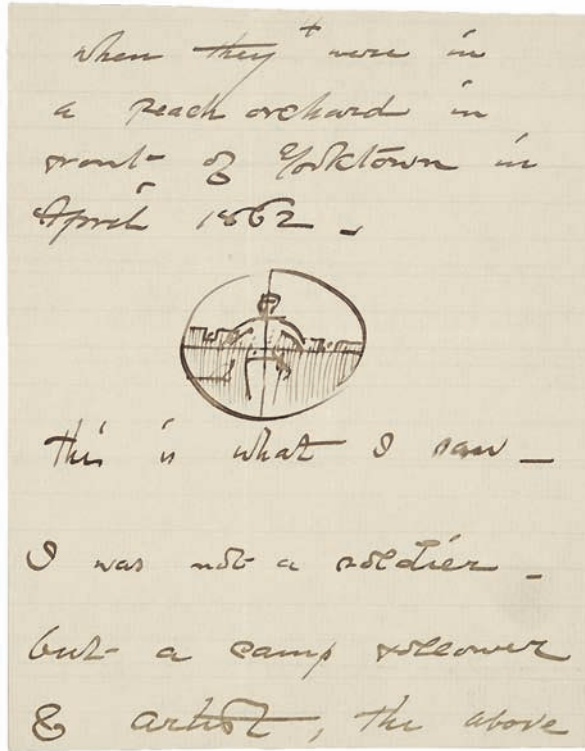 when they were in
a peach orchard in
front of Yorktown in
April 1862 –
this is what I saw –
I was not a soldier –
but a camp follower
& artist, the above